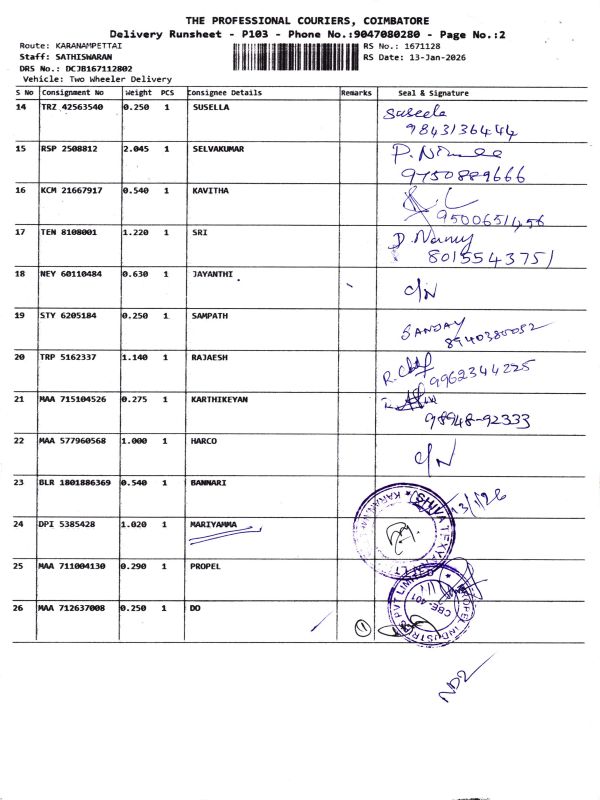 THE PROFESSIONAL COURIERS, COIMBATORE
Delivery Runsheet - P103 - Phone No.:9047080280 - Page No.:2
Route: KARANAMPETTAI
RS No.: 1671128
Staff: SATHISWARAN
RS Date: 13-Jan-2026
DRS No.: DCJB167112802
Vehicle: Two Wheeler Delivery
S No Consignment No Weight PCS Consignee Details Remarks Seal & Signature
14 TRZ 42563540 0.250 1 SUSELLA Suseela
9843136444
15 RSP 2508812 2.045 1 SELVAKUMAR
9750889666
16 KCM 21667917 0.540 1 KAVITHA
9500651456
17 TEN 8108001 1.220 1 SRI
8015543751
18 NEY 60110484 0.630 1 JAYANTHI C/N
19 STY 6205184 0.250 1 SAMPATH SANJAY
8940380052
20 TRP 5162337 1.140 1 RAJAESH
9962344225
21 MAA 715104526 0.275 1 KARTHIKEYAN
98948-92333
22 MAA 577960568 1.000 1 HARCO C/N
23 BLR 1801886369 0.540 1 BANNARI 13/1/26
24 DPI 5385428 1.020 1 MARIYAMMA SHIVA TEXY
25 MAA 711004130 0.290 1 PROPEL
26 MAA 712637008 0.250 1 DO 11
PROPEL INDUSTRIES PVT LIMITED
CBE-401
ND2